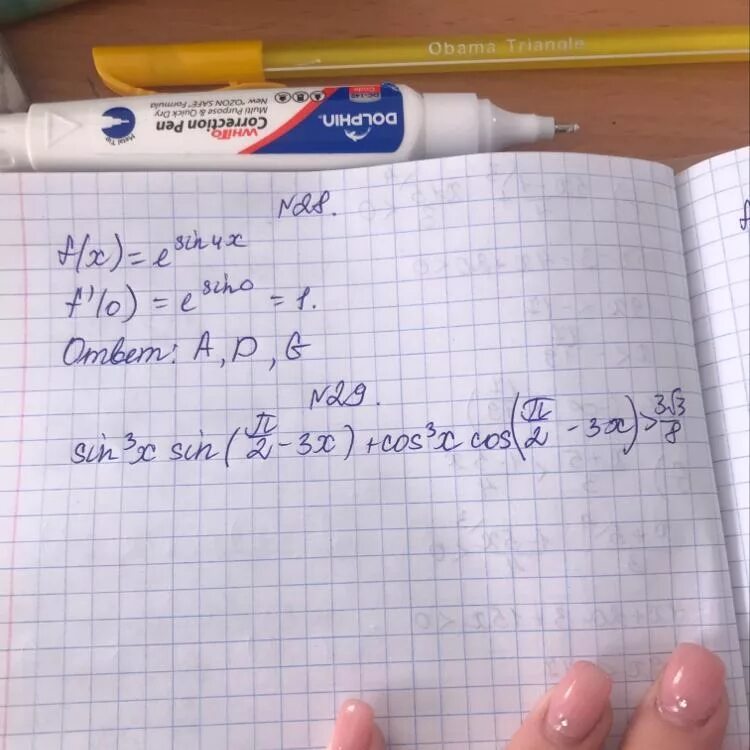 Obama Triangle
DOLPHIN
WHITO
Correction Pen
Multi Purpose & Quick Dry
New "OZON SAFE" Formula
Metal Tip
№28.
f(x) = e^sin4x
f'(0) = e^sin0 = 1.
Ответ: A, D, G
№29.
sin³x sin(π/2 - 3x) + cos³x cos(π/2 - 3x) > 3√3/8